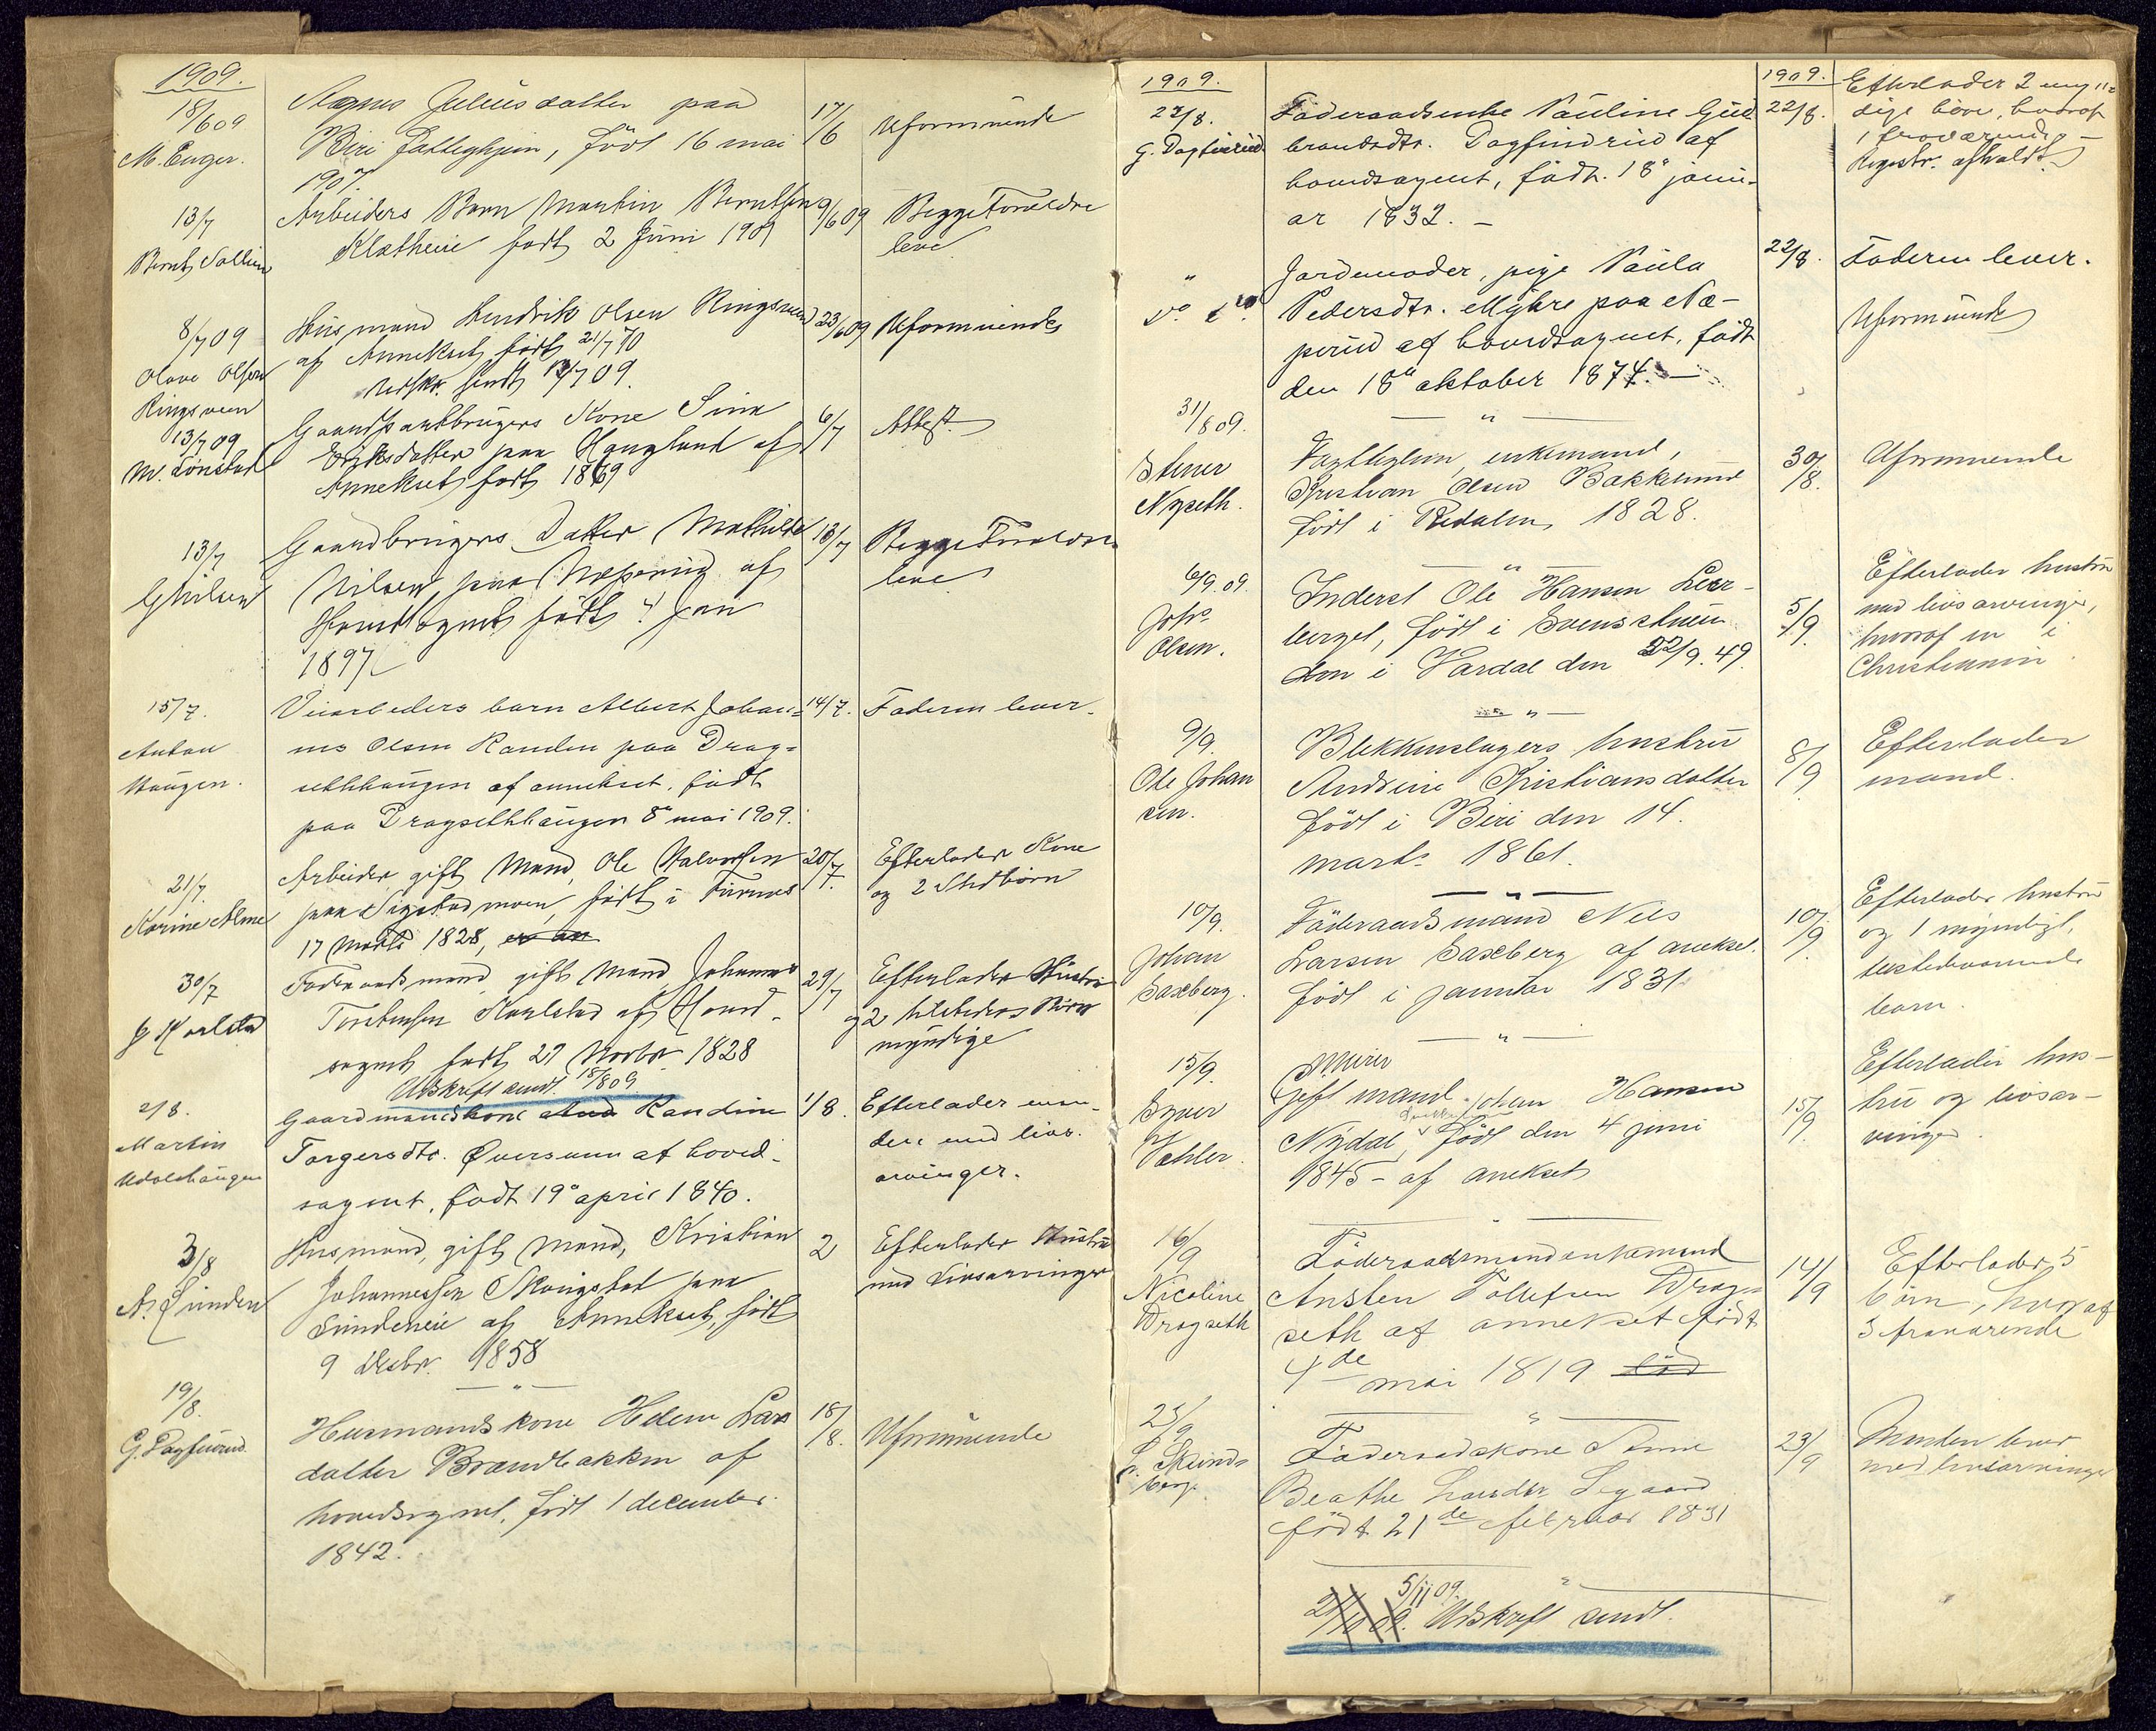 1909.
18/6 09
M. Enger.
Agnes Juliusdatter paa
Biri Fattighjem, född 16 mai
1907.
17/6
Uformuende
13/7
Arbeiders Barn Martin Berntsen
Klætheie født 2 Juni 1909
9/6 09
Begge Forældre
leve
8/7 09
Olave Olsen
Ringsveen
Husmand Hendrik Olsen Ringsveen
af Annekset født 21/7 70
Udskr. sendt 13/7 09.
23/6 09
Uformuende
13/7 09
M. Lønstad
Gaardpartbrugers Kone Sina
Eriksdatter paa Haugland af
Annekset født 1869
6/7
Attest
13/7
G Nilsen
Gaardbrugers Datter Mathilde
Nilsen paa Næperud af
Hovedsognet født 4 Jan
1897
13/7
Begge Forældre
leve
15/7.
Anton
Haugen.
Veiarbeiders barn Albert Johan-
nes Olsen Randen paa Drag-
sethhaugen af annekset, født
paa Dragsethhaugen 8de mai 1909.
14/7.
Faderen lever.
21/7.
Karine Alme
Arbeider gift Mand, Ole Halvorsen
paa Sigstadmoen, født i Furnes
17 Marts 1828,
20/7.
Efterlader Kone
og 2 Stedbørn
30/7
J Karlstad
Føderaadsmand gift Mand Johannes
Torstensen Karlstad af Hoved-
sognet født 27 Novbr 1828
Udskrift sendt 15/8 09
29/7
Efterlader Hustru
og 2 tilstedevær. Børn
myndige
2/8.
Martin
Gaardmandskone Randine
Torgersdtr. Øversveen af hoved-
sognet, født 19de april 1840.
1/8.
Efterlader man-
den med livs-
arvinger.
3/8
A. Sunden
Husmand, gift Mand, Kristian
Johannessen Skougstad paa
Sundeneie af Annekset, født
9 Decbr. 1858
2
Efterlader Hustru
med Livsarvinger
19/8.
G. Dagfinrud.
Husmandskone Helene Lars
datter Brændbakken af
hovedsognet, født 1 december
1842.
18/8.
Uformuende
1909.
22/8.
G. Dagfinrud
Føderaadsenke Pauline Gud-
brandsdtr. Dagfindrud af
hovedsognet, födt. 18de janu-
ar 1832. -
1909.
22/8.
Efterlader 2 myn-
dige børn, hvoraf
1 fraværende -
Registr. afholdt
"
do. do.
Jordemoder, pige Paula
Pedersdtr. Myhre paa Næ-
perud af hovedsognet, født
den 18de oktober 1874. -
22/8.
Faderen lever.
Uformuende
31/8 09.
Stener
Nyseth.
Fattiglem, enkemand,
Kristian Olsen Bakkelund
född i Redalen 1828.
30/8.
Uformuende
6/9 09.
Johs.
Olsen.
Inderst Ole Hansen Leer-
berget, född i Svenskhuus-
den i Vardal den 22/9. 49.
5/9.
Efterlader hustru
med livsarvinger,
hvoraf en i
Christiania.
9/9.
Ole Johan
sen.
Blekkenslagers hustru
Andrine Kristiansdatter
född i Biri den 14.
marts 1861.
8/9.
Efterlader
mand.
10/9.
Johan
Saxberg.
Föderaadsmand Nils
Larsen Saxberg af anekset.
född i januar 1831.
10/9.
Efterlader hustru
og 1 myndigt,
tilstedeværende
barn.
15/9.
Syver
Væhler.
Murer
Gift mand Johan Hansen
Nydal, född den 4 juni
1845 - af anekset
15/9.
Efterlader hus-
tru og livsar-
vinger.
16/9
Nicoline
Dragseth
Föderaadsmand enkemand
Ansten Tollefsen Drag-
seth af annekset född
4de mai 1819
14/9
Efterlader 5
börn, hvoraf
3 fraværende
25/9
L. Skinds-
berg.
Föderaadskone Anne
Beathe Larsdtr Segaard
född 21de februar 1831
23/9
Manden lever
med livsarvinger
5/11 09.
21/10 09. Udskrift sendt.